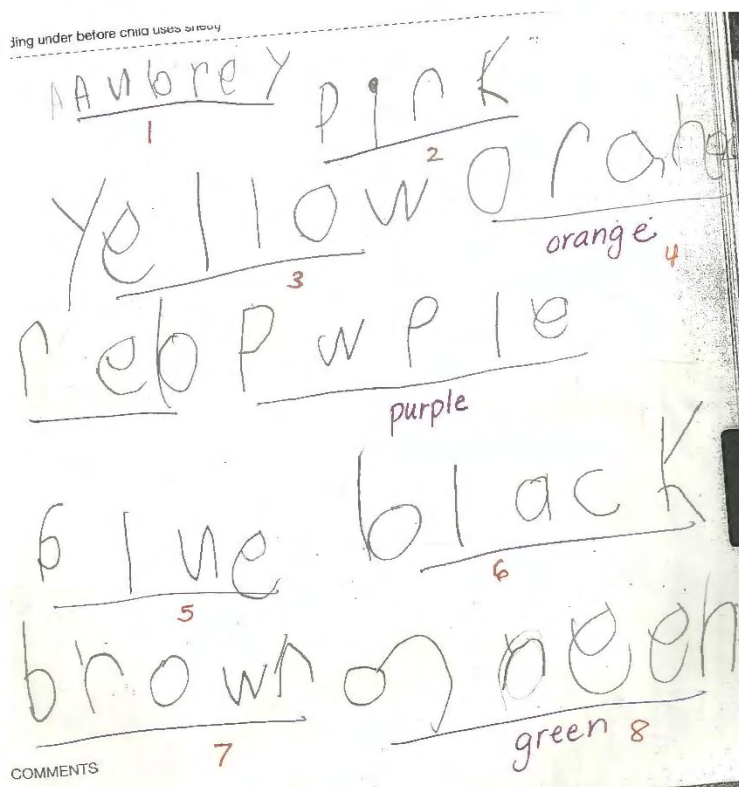 ding under before child uses sheet)
A Aubrey pink
1 2
Yellow orange
3 orange 4
reb pwple
purple
blue black
5 6
brown green
7 green 8
COMMENTS